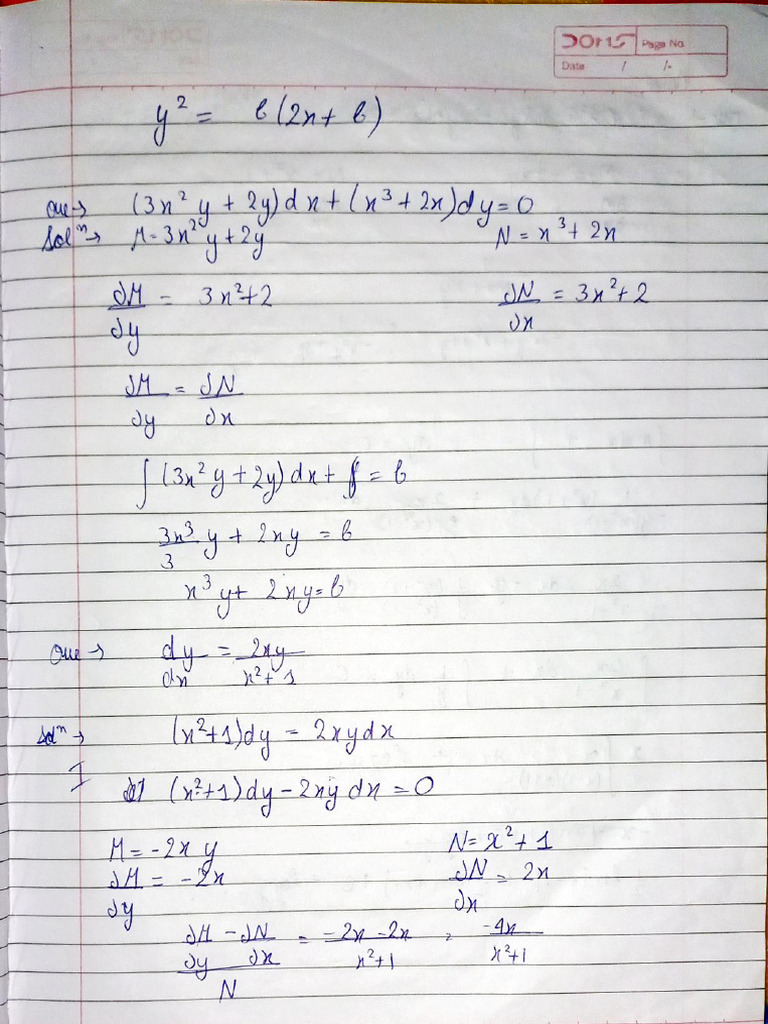 DOMS Page No.
Date / /
y² = b(2x + b)
Que → (3x² y + 2y)dx + (x³ + 2x)dy = 0
Solⁿ → M = 3x² y + 2y N = x³ + 2x
∂M/∂y = 3x² + 2 ∂N/∂x = 3x² + 2
∂M/∂y = ∂N/∂x
∫(3x² y + 2y)dx + ∫ = b
3x³/3 y + 2xy = b
x³y + 2xy = b
Que → dy/dx = 2xy/x² + 1
Solⁿ → (x² + 1)dy = 2xydx
I (x² + 1)dy - 2xydx = 0
M = -2xy N = x² + 1
∂M/∂y = -2x ∂N/∂x = 2x
∂M/∂y - ∂N/∂x / N = -2x - 2x/x² + 1 = -4x/x² + 1